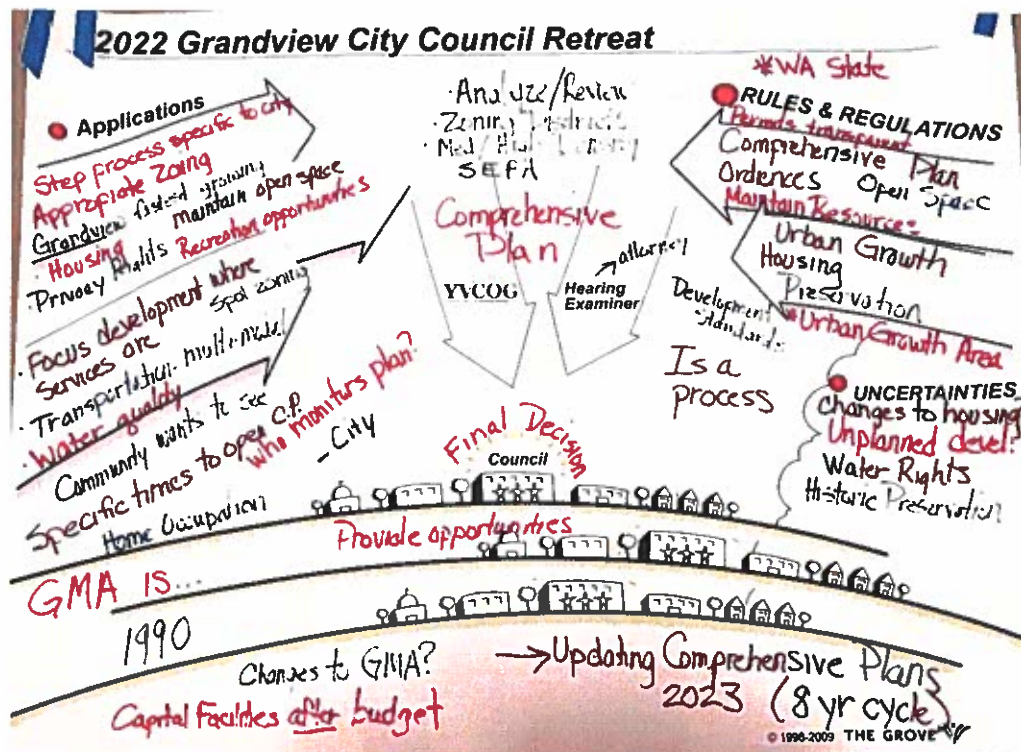 2022 Grandview City Council Retreat
Applications
Step process specific to city
Appropiate Zoning
Grandview fastest growing
maintain open space
· Housing
Privacy Rights Recreation opportunities
· Focus development where
Services are
Spot zoning
· Transportation multi-modal
· Water quality
Community wants to see
Specific times to open C.P.
who monitors plan?
- City
Home Occupation
· Analyze/Review
· Zoning Districts
· Med/High Density
SEPA
Comprehensive
Plan
YVCOG
Hearing
Examiner
attorney
Development
Standards
Is a
process
*WA State
RULES & REGULATIONS
Permits transparent
Comprehensive Plan
Ordences Open Space
Maintain Resources
Urban Growth
Housing
Preservation
*Urban Growth Area
UNCERTAINTIES
Changes to housing
Unplanned devel?
Water Rights
Historic Preservation
Final Decision
Council
Provide opportunities
GMA IS...
1990
Changes to GMA?
Capital Facilities after budget
→Updating Comprehensive Plans
2023 (8 yr cycle)
© 1996-2009 THE GROVE